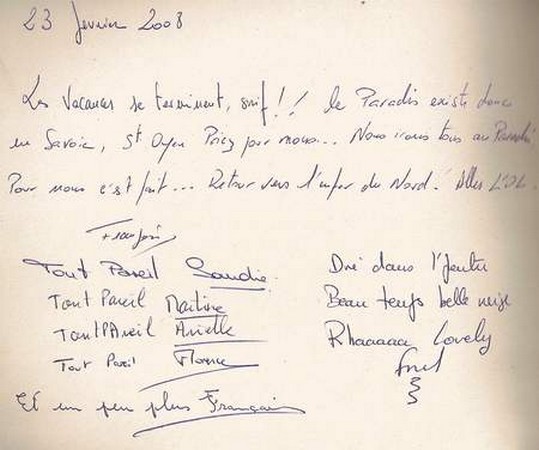 23 février 2008
Les Vacances se terminent, snif!! le Paradis existe donc
en Savoie, St Oyen Priez pour nous... Nous irons tous au Paradis
Pour nous c'est fait... Retour vers l'enfer du Nord. Allez L'OL.
François
Tout Pareil Sandie
Tout Pareil Martine
Tout PAreil Arielle
Tout Pareil Florence
Et un peu plus Français
Dré dans l'
Beau temps belle neige
Rhaaaaa Lovely